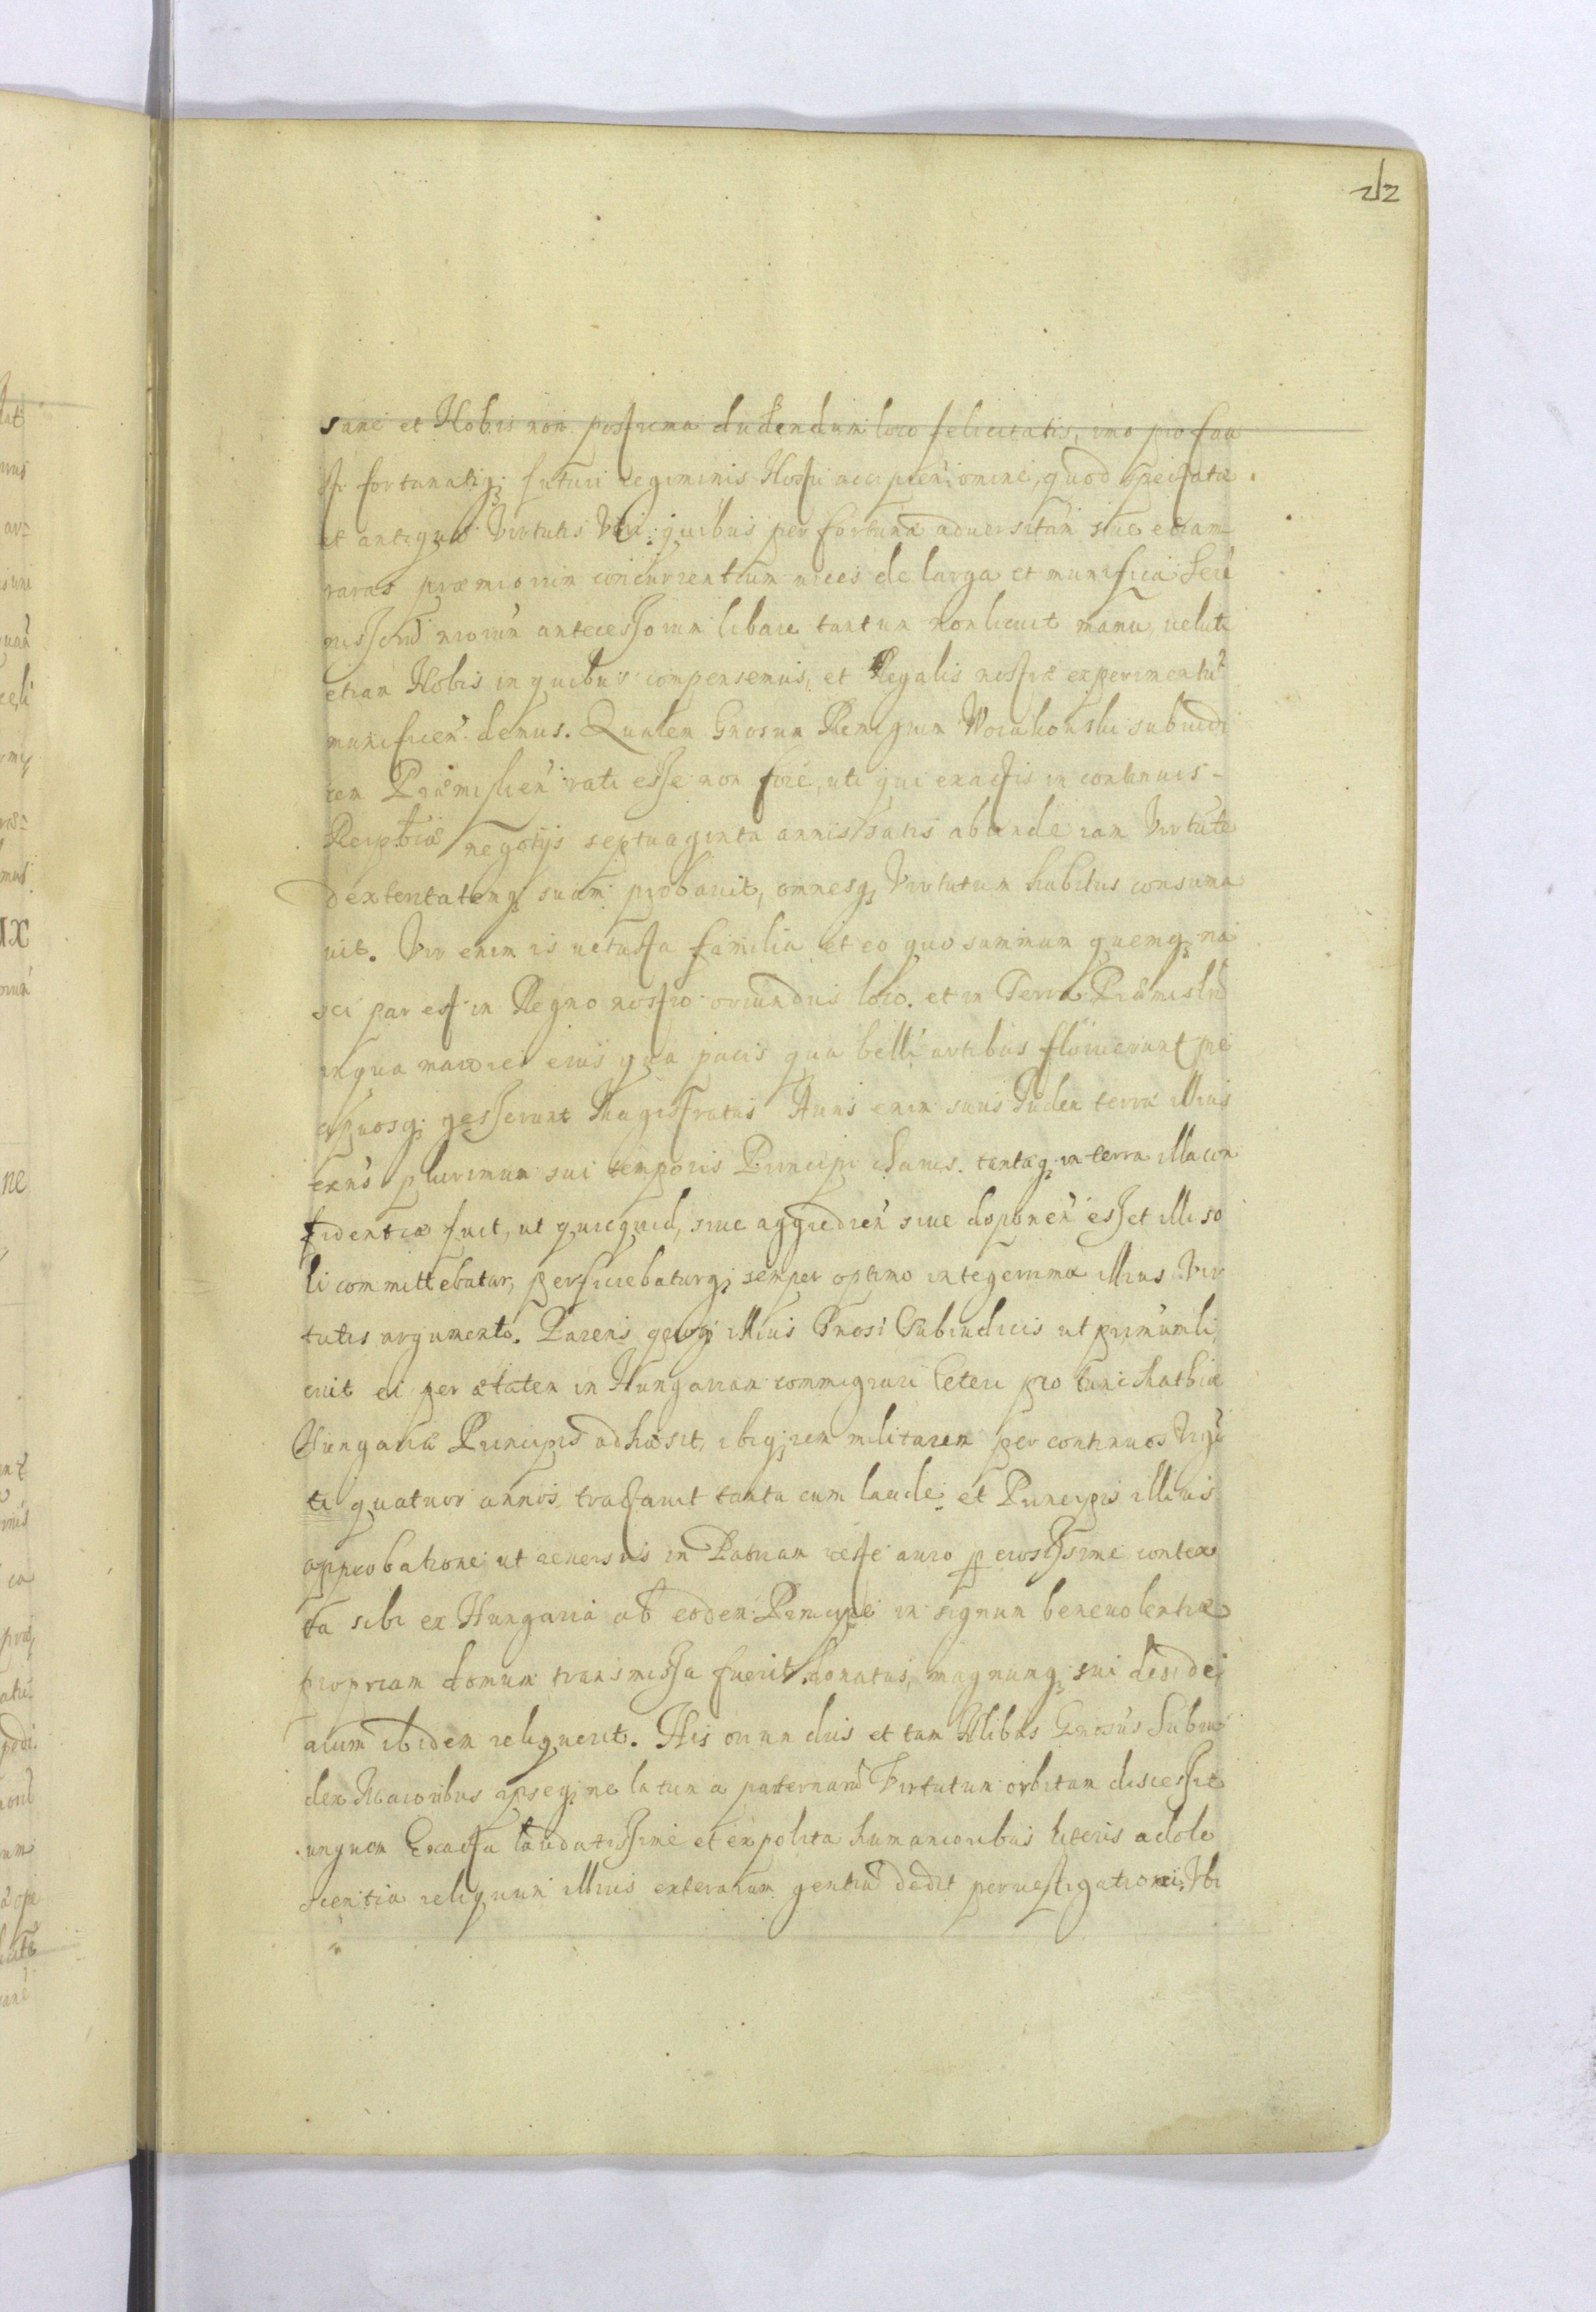 212
sane et Nobis non postrema ducendum loco felicitatis, imo pro fau
sti fortunatiq; futuri regiminis Nostri accipien omine, quod spectatae
et antiquae Virtutis Viri, quibus per fortunae aduersitatem siue etiam
raras praemiorum concurrentium uices de larga et munifica Sere
nissimorũ antecessorum libare tantum non licuit manu, ueluti
etiam Nobis in quibus compensemus, et Regalis nostrae experimentũ
munificen demus. Qualem Gnosum Remigium Woiakowski subiudi
cem Praemislien rati esse non fore, uti qui exactis in continuis
Reipbcae negotijs septuaginta annis satis abunde iam Virtute
dexteritatemq; suam probauit, omnesq; Virtutum habitus consuma
uit. Vir enim is uetusta familia et eo quo summum quemq; na
sci par est in Regno nostro oriundus loco. et in Terra Praemisliẽ
in qua maiores eius qua pacis qua belli artibus floruerunt prae
cipuosq; gesserunt Magistratus Auus enim suus Iudex terrae illius
plurimum sui temporis Principi charus. tantaeq; in terra illa con
fidentiae fuit, ut quicquid, siue aggredien siue doponen esset illi so
li committebatur, perficiebaturq; semper optimo integerrimae illius Vir
tutis argumento. Parens illius Gnosi Subiudicis ut primum li
cuit ei per aetatem in Hungariam commigrari lateri pro tunc Mathiae
Hungariae Principis adhaesit, ibiq; rem militarem per continuos Vigi
ti quatuor annos tractauit tanta cum laude et Principis illius
approbatione ut reuersus in Patriam ueste auro preciosissime contex
ta sibi ex Hungaria ab eodem Principe in signum beneuolentiae
propriam domum transmissa fuerit donatus, magnumq; sui desidei
arium ibidem reliquerit. His oriundus et tam Gnosus Subiu
dex Maioribus ipseq; ne latum a paternarũ Virtutum orbitam discessit
unguem Exacta laudatissime et expolita humanioribus literis adole
scentia reliquum illius exterarum gentiũ dedit peruestigationi. Ibi